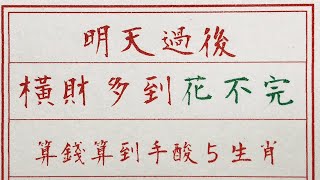 明天過後
橫財多到花不完
算錢算到手酸5生肖